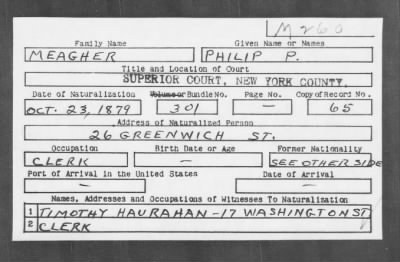 M260
Family Name Given Name or Names
MEAGHER PHILIP P.
Title and Location of Court
SUPERIOR COURT, NEW YORK COUNTY.
Date of Naturalization Volume or Bundle No. Page No. Copy of Record No.
OCT. 23, 1879 301 — 65
Address of Naturalized Person
26 GREENWICH ST.
Occupation Birth Date or Age Former Nationality
CLERK — SEE OTHER SIDE
Port of Arrival in the United States Date of Arrival
— —
Names, Addresses and Occupations of Witnesses To Naturalization
1 TIMOTHY HAURAHAN - 17 WASHINGTON ST.
2 CLERK